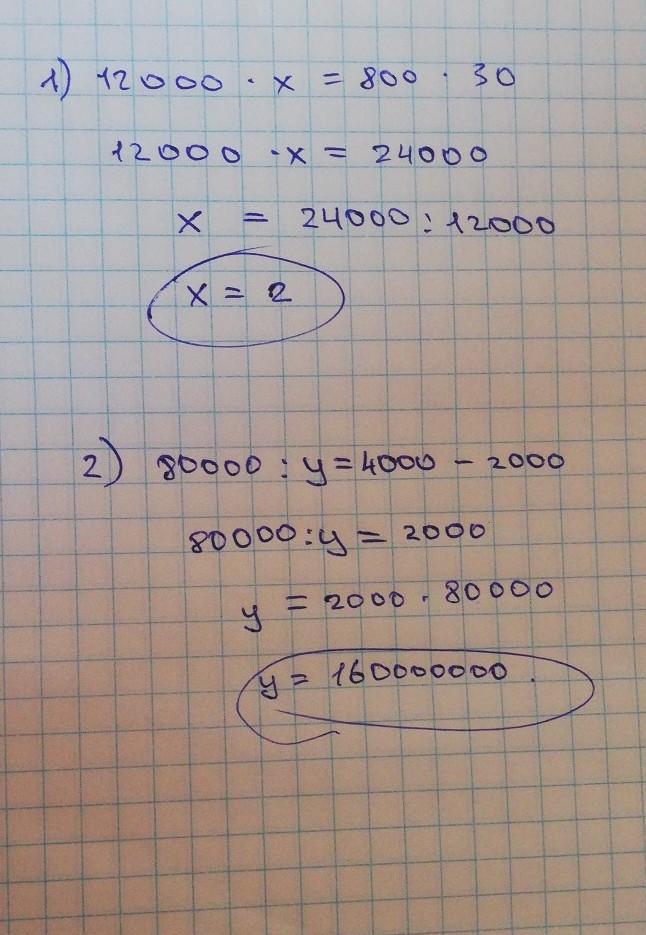 1) 12000 · x = 800 · 30
12000 · x = 24000
x = 24000 : 12000
x = 2
2) 80000 : y = 4000 - 2000
80000 : y = 2000
y = 2000 · 80000
y = 160000000.